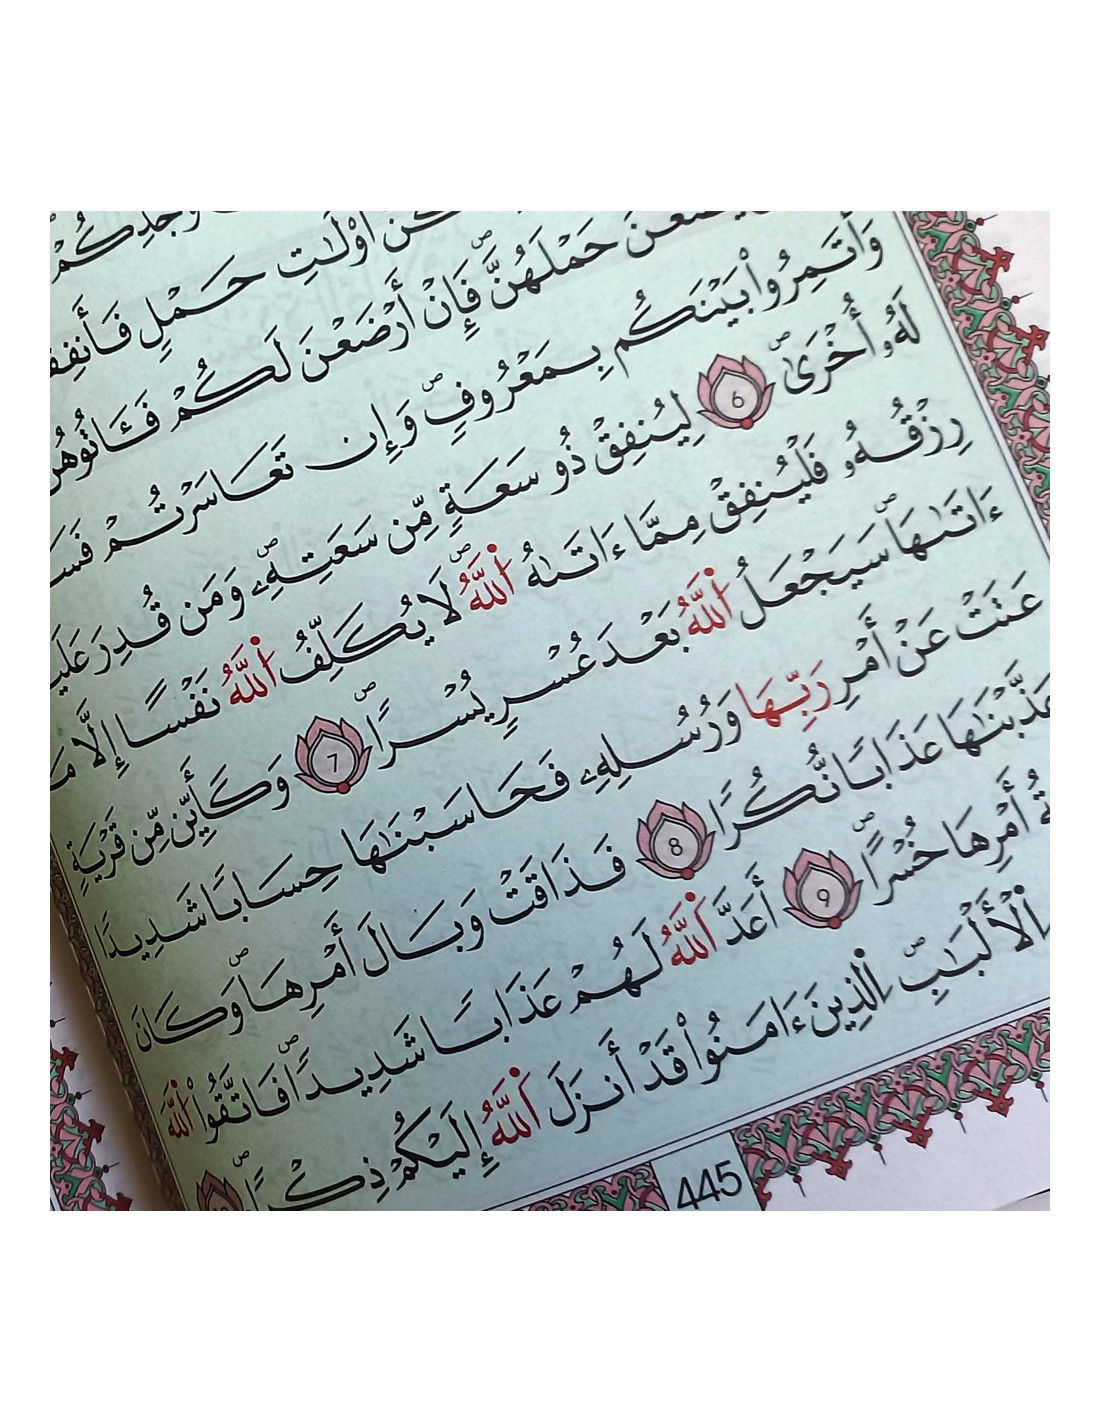 وُجْدِكُمْ
أُوْلَٰتِ حَمْلٍ
حَمْلَهُنَّۖ فَإِنْ أَرْضَعْنَ لَكُمْ فَـَٔاتُوهُنَّ
وَأْتَمِرُواْ بَيْنَكُم بِمَعْرُوفٍۖ وَإِن تَعَاسَرْتُمْ
لَهُۥ أُخْرَىٰۖ 6 لِيُنفِقْ ذُو سَعَةٍ مِّن سَعَتِهِۦۖ وَمَن قُدِرَ
رِزْقُهُۥ فَلْيُنفِقْ مِمَّا ءَاتَىٰهُ اُ۬للَّهُۖ لَا يُكَلِّفُ اُ۬للَّهُ نَفْسًا إِلَّا
ءَاتَىٰهَاۖ سَيَجْعَلُ اُ۬للَّهُ بَعْدَ عُسْرٍ يُسْرًاۖ 7 وَكَأَيِّن مِّن قَرْيَةٍ
عَتَتْ عَنْ أَمْرِ رَبِّهَا وَرُسُلِهِۦ فَحَاسَبْنَٰهَا حِسَابًا شَدِيدًا
عَذَّبْنَٰهَا عَذَابًا نُّكُرًا 8 فَذَاقَتْ وَبَالَ أَمْرِهَاۖ وَكَانَ
أَمْرِهَا خُسْرًاۖ 9 أَعَدَّ اَ۬للَّهُ لَهُمْ عَذَابًا شَدِيدًاۖ فَاتَّقُواْ اُ۬للَّهَ
اِ۬لْأَلْبَٰبِۖ اِ۬لذِينَ ءَامَنُواْ قَدْ أَنزَلَ اَ۬للَّهُ إِلَيْكُمْ ذِكْرًاۖ
445